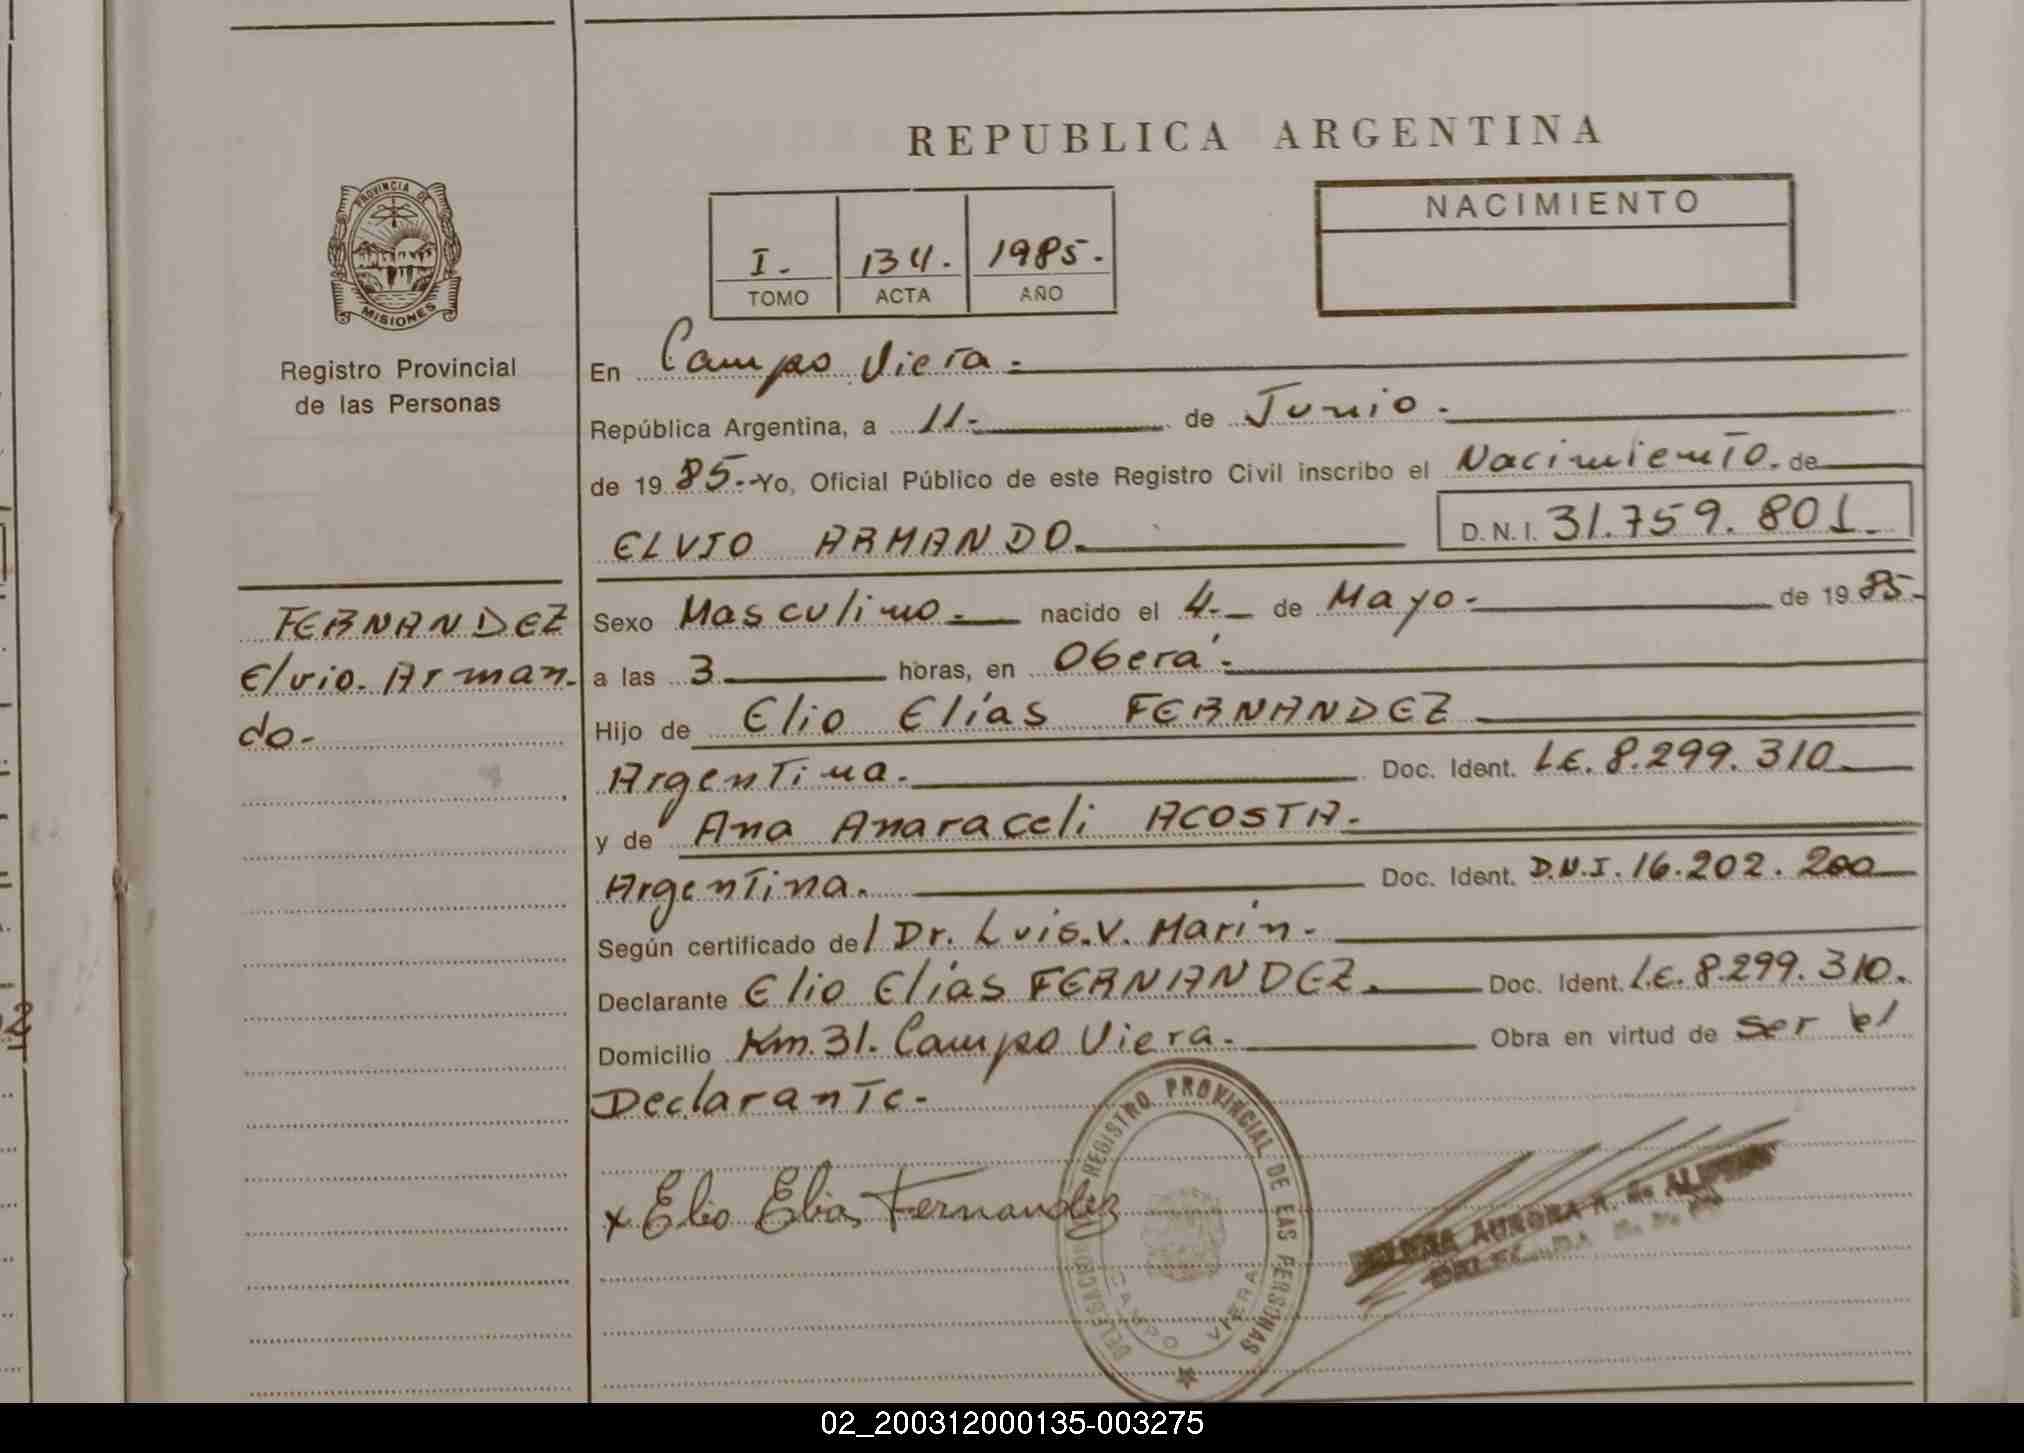 REPUBLICA ARGENTINA
PROVINCIA DE
MISIONES
Registro Provincial
de las Personas
I.- 134.- 1985.-
TOMO ACTA AÑO
NACIMIENTO
En Campo Viera.-
República Argentina, a 11.- de Junio.-
de 1985.- Yo, Oficial Público de este Registro Civil inscribo el Nacimiento. de
ELVIO ARMANDO.- D.N.I. 31.759.801.-
FERNANDEZ
Elvio. Arman-
do.-
Sexo Masculino.- nacido el 4.- de Mayo.- de 1985.-
a las 3 horas, en Oberá.-
Hijo de Elio Elías FERNANDEZ
Argentina.- Doc. Ident. L.E. 8.299.310
y de Ana Anaraceli ACOSTA.-
Argentina.- Doc. Ident. D.N.I. 16.202.200
Según certificado del Dr. Luis.V. Marin.-
Declarante Elio Elías FERNANDEZ.- Doc. Ident. L.E. 8.299.310.
Domicilio Km.31. Campo Viera.- Obra en virtud de ser el
Declarante.-
x Elio Elias Fernandez
DELEGACION REGISTRO PROVINCIAL DE LAS PERSONAS
CAMPO VIERA
AURORA
02_200312000135-003275